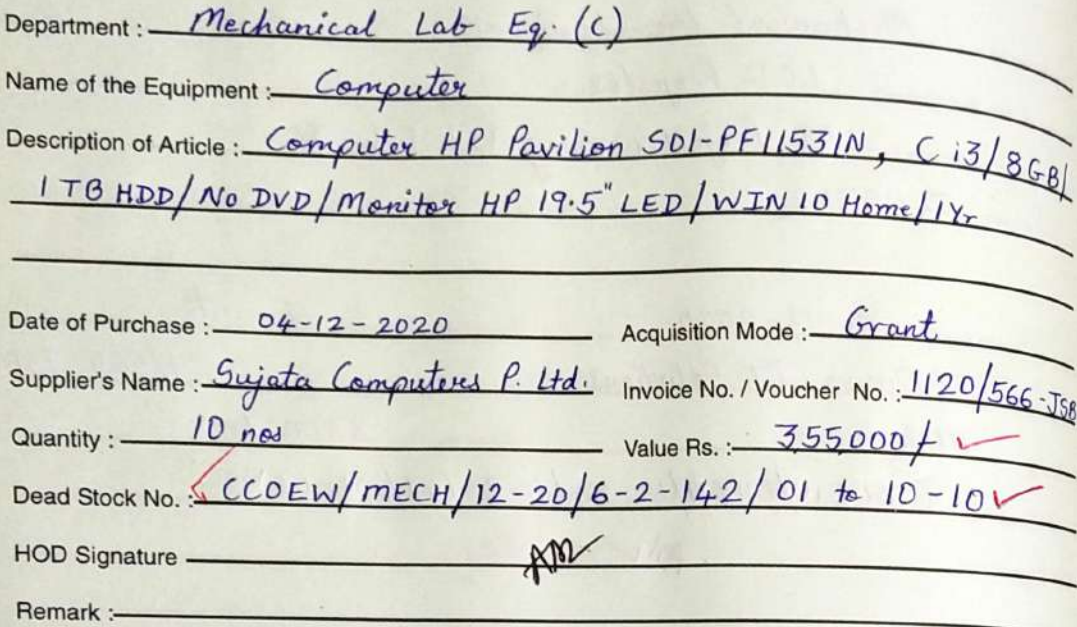 Department : Mechanical Lab Eq. (C)
Name of the Equipment : Computer
Description of Article : Computer HP Pavilion S01-PF1153IN, C i3/8GB/
1 TB HDD/No DVD/Monitor HP 19.5" LED/WIN 10 Home/1Yr
Date of Purchase : 04-12-2020 Acquisition Mode : Grant
Supplier's Name : Sujata Computers P. Ltd. Invoice No. / Voucher No. : 1120/566-JSB
Quantity : 10 nos Value Rs. : 355000/-
Dead Stock No. : CCOEW/MECH/12-20/6-2-142/01 to 10-10
HOD Signature
Remark :